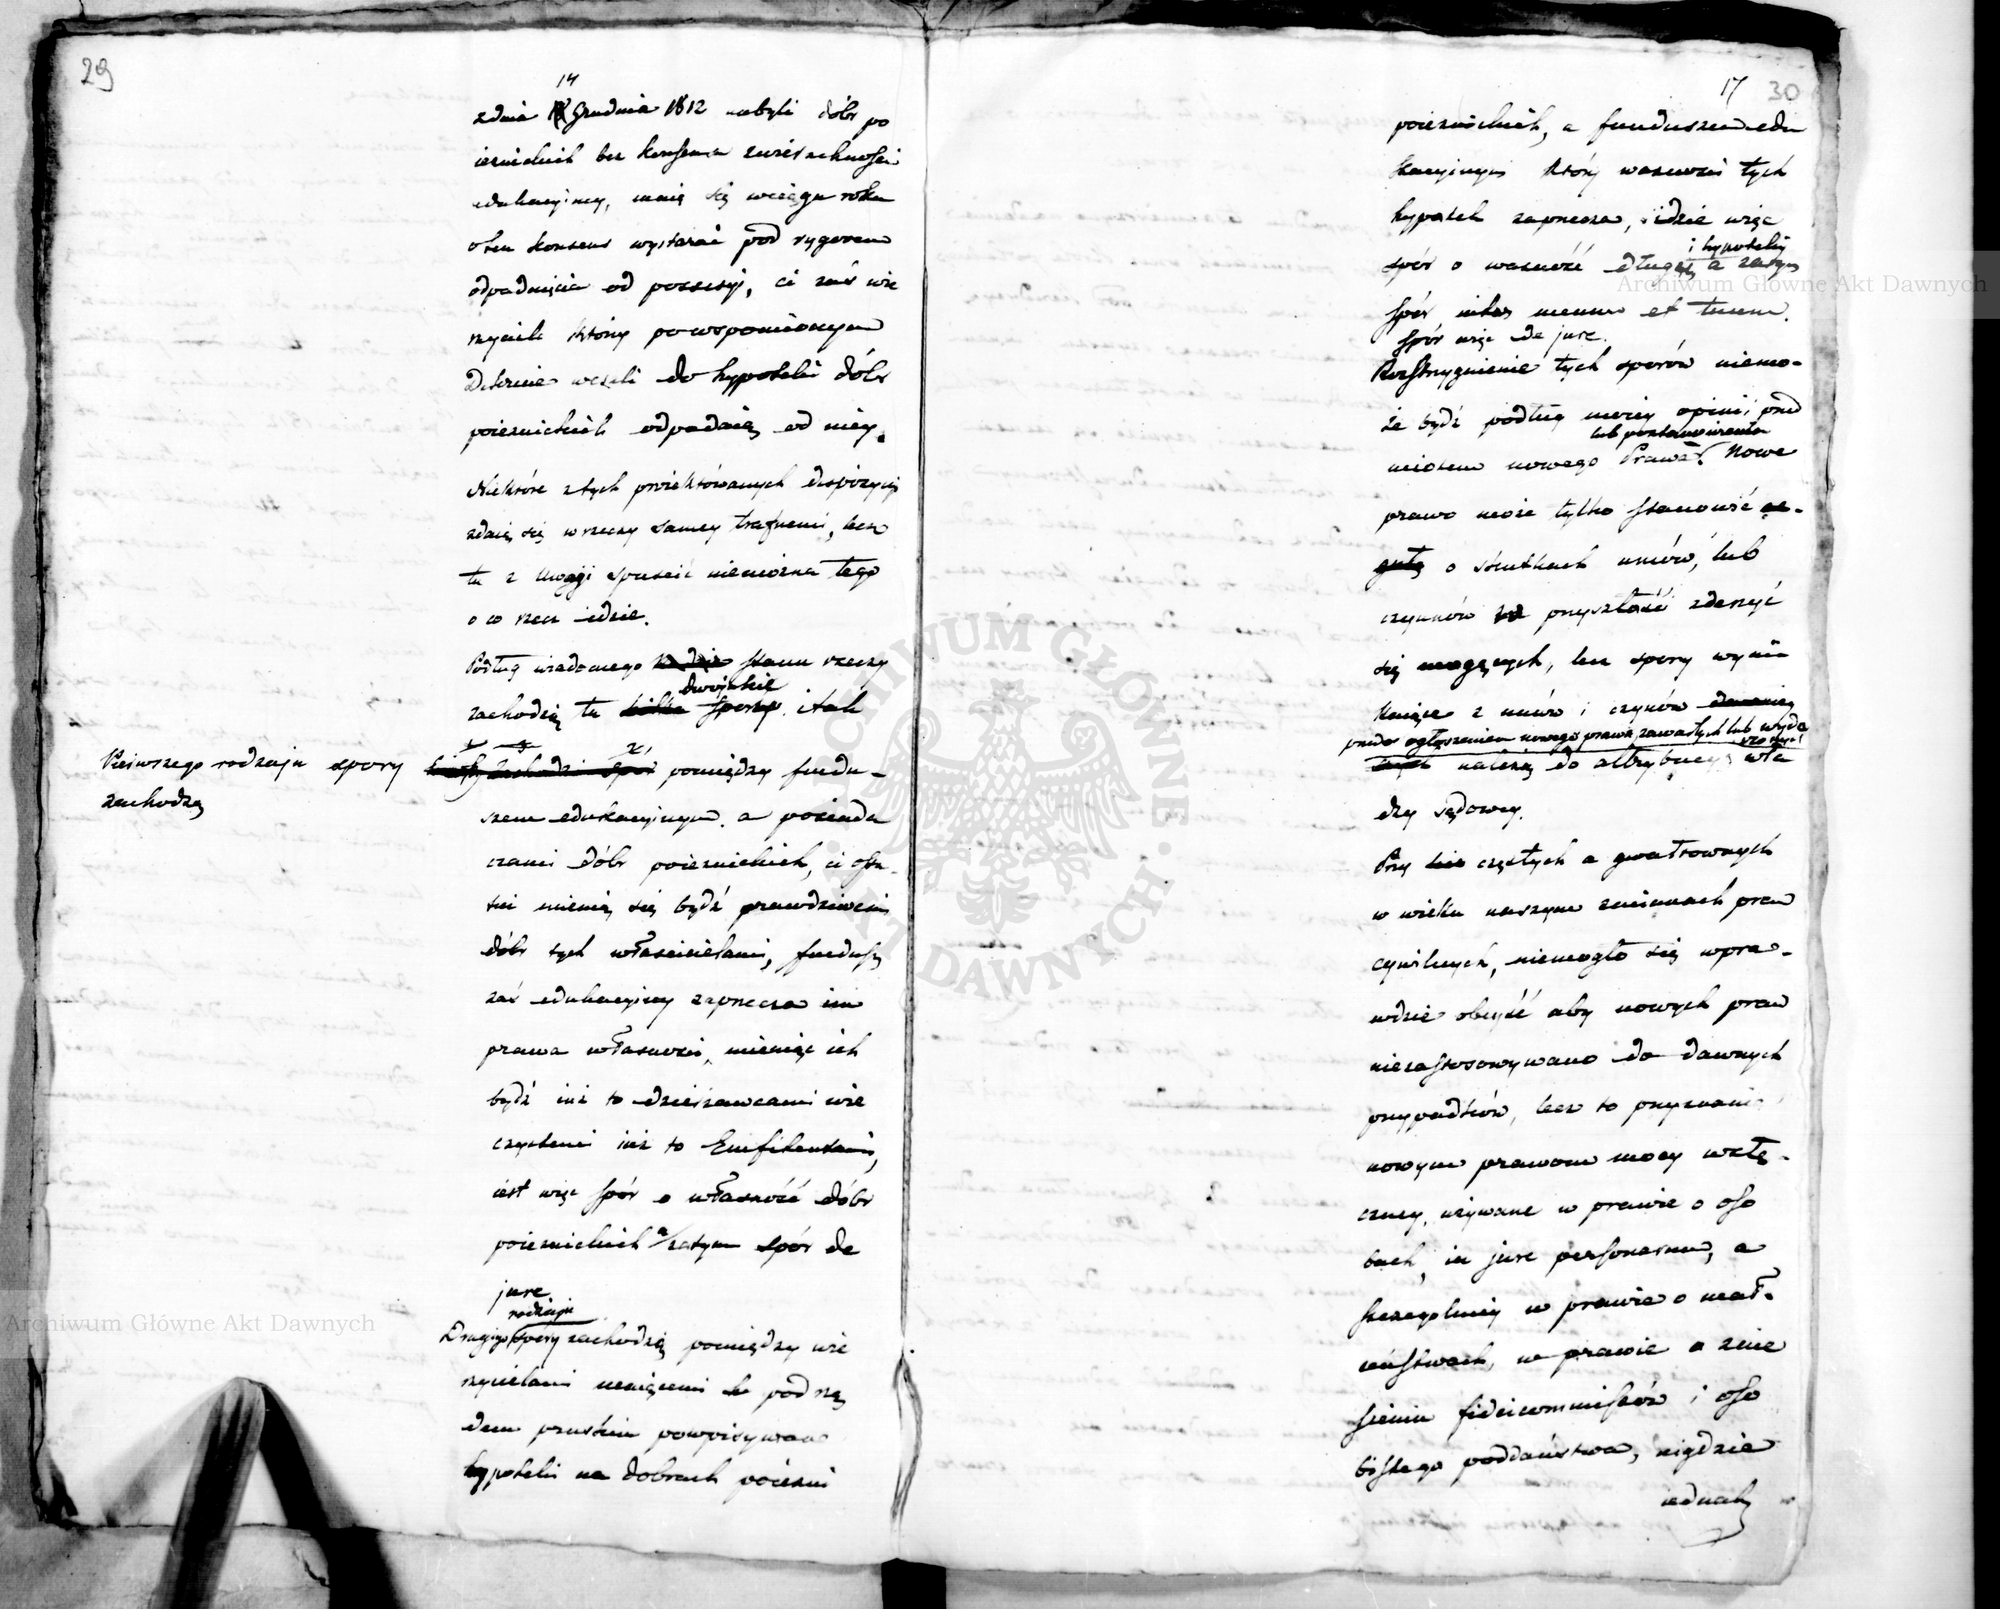 29
14
z dnia Grudnia 1812 nabyli dóbr po
iezuickich bez konsensu zwierzchności
edukacyiney, maią się wciągu roku
o ten konsens wystarać pod rygorem
odpadnięcia od possessyi, ci zaś wie
rzyciele którzy po wspomnionym
Dekrecie weszli do hypoteki dóbr
poiezuickich odpadaią od niey.
Niektóre z tych proiektowanych dispozycyi
zdaią się w rzeczy samey trafnemi, lecz
tu z uwagi spuścić niemożna tego
o co rzecz idzie.
Podług wiadomego stanu rzeczy
dwoiakie
zachodzą tu spory. itak
Pierwszego rodzaju spory
zachodzą
pomiędzy fundu-
szem edukacyinym a posiada
czami dóbr poiezuickich, ci osta-
tni mienią się bydź prawdziwemi
dóbr tych właścicielami, fundusz
zaś edukacyiny zaprzecza im
prawa własności, mieniąc ich
bydź iuż to dzierżawcami wie
czystemi iuż to Emfiteutami,
iest więc spór o własność dóbr
poiezuickich a zatym spór de
jure
rodzaju
Drugiego spory zachodzą pomiędzy wie
rzycielami maiącemi pod rzą
dem pruskim powpisywane
hypoteki na dobrach poiezui
17 30
poiezuickich, a funduszem edu
kacyinym który ważności tych
hypotek zaprzecza, idzie więc
i hypoteki
spór o ważność długu, a zatym
spór inter meum et tuum.
spór więc de jure.
Rozstrzygnienie tych sporów niemo-
że bydź podług moiey opinii przed
lub postanowienia
miotem nowego Prawa. Nowe
prawo może tylko stanowić
o skutkach umów, lub
czynów w przyszłość zdarzyć
się mogących, lecz spory wyni
kaiące z umów i czynów
przed ogłoszeniem nowego prawa zawartych lub wyda
rzonych
należą do attrybucyi wła
dzy sądowey.
Przy częstych a gwałtownych
w wieku naszym zmianach praw
cywilnych, niemogło się wpra-
wdzie obeyść aby nowych praw
niezastosowywano do dawnych
przypadków, lecz to przyznanie
nowym prawom mocy wstę-
czney, używane w prawie o oso
bach, in jure personarum, a
szczególniey w prawie o mał-
żeństwach, w prawie o znie
sieniu fideicommissów i oso
bistego poddaństwa, nigdzie
iednak
Archiwum Główne Akt Dawnych
Archiwum Główne Akt Dawnych
ARCHIWUM GŁÓWNE AKT DAWNYCH